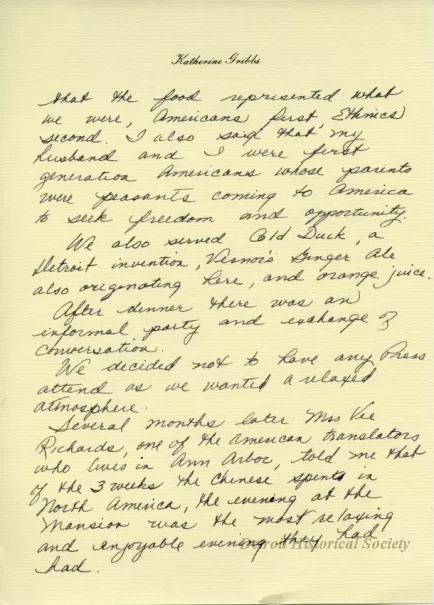 Katherine Gribbs
that the food represented what
we were, Americans first, Ethnics
second. I also said that my
husband and I were first
generation Americans whose parents
were peasants coming to America
to seek freedom and opportunity.
We also served Cold Duck, a
Detroit invention, Vernor's Ginger Ale
also originating here, and orange juice.
After dinner there was an
informal party and exchange of
conversation.
We decided not to have any Press
attend as we wanted a relaxed
atmosphere.
Several months later Mrs Vee
Richards, one of the American translators
who lives in Ann Arbor, told me that
of the 3 weeks the Chinese spent in
North America, the evening at the
Mansion was the most relaxing
and enjoyable evening they had
had.
Detroit Historical Society